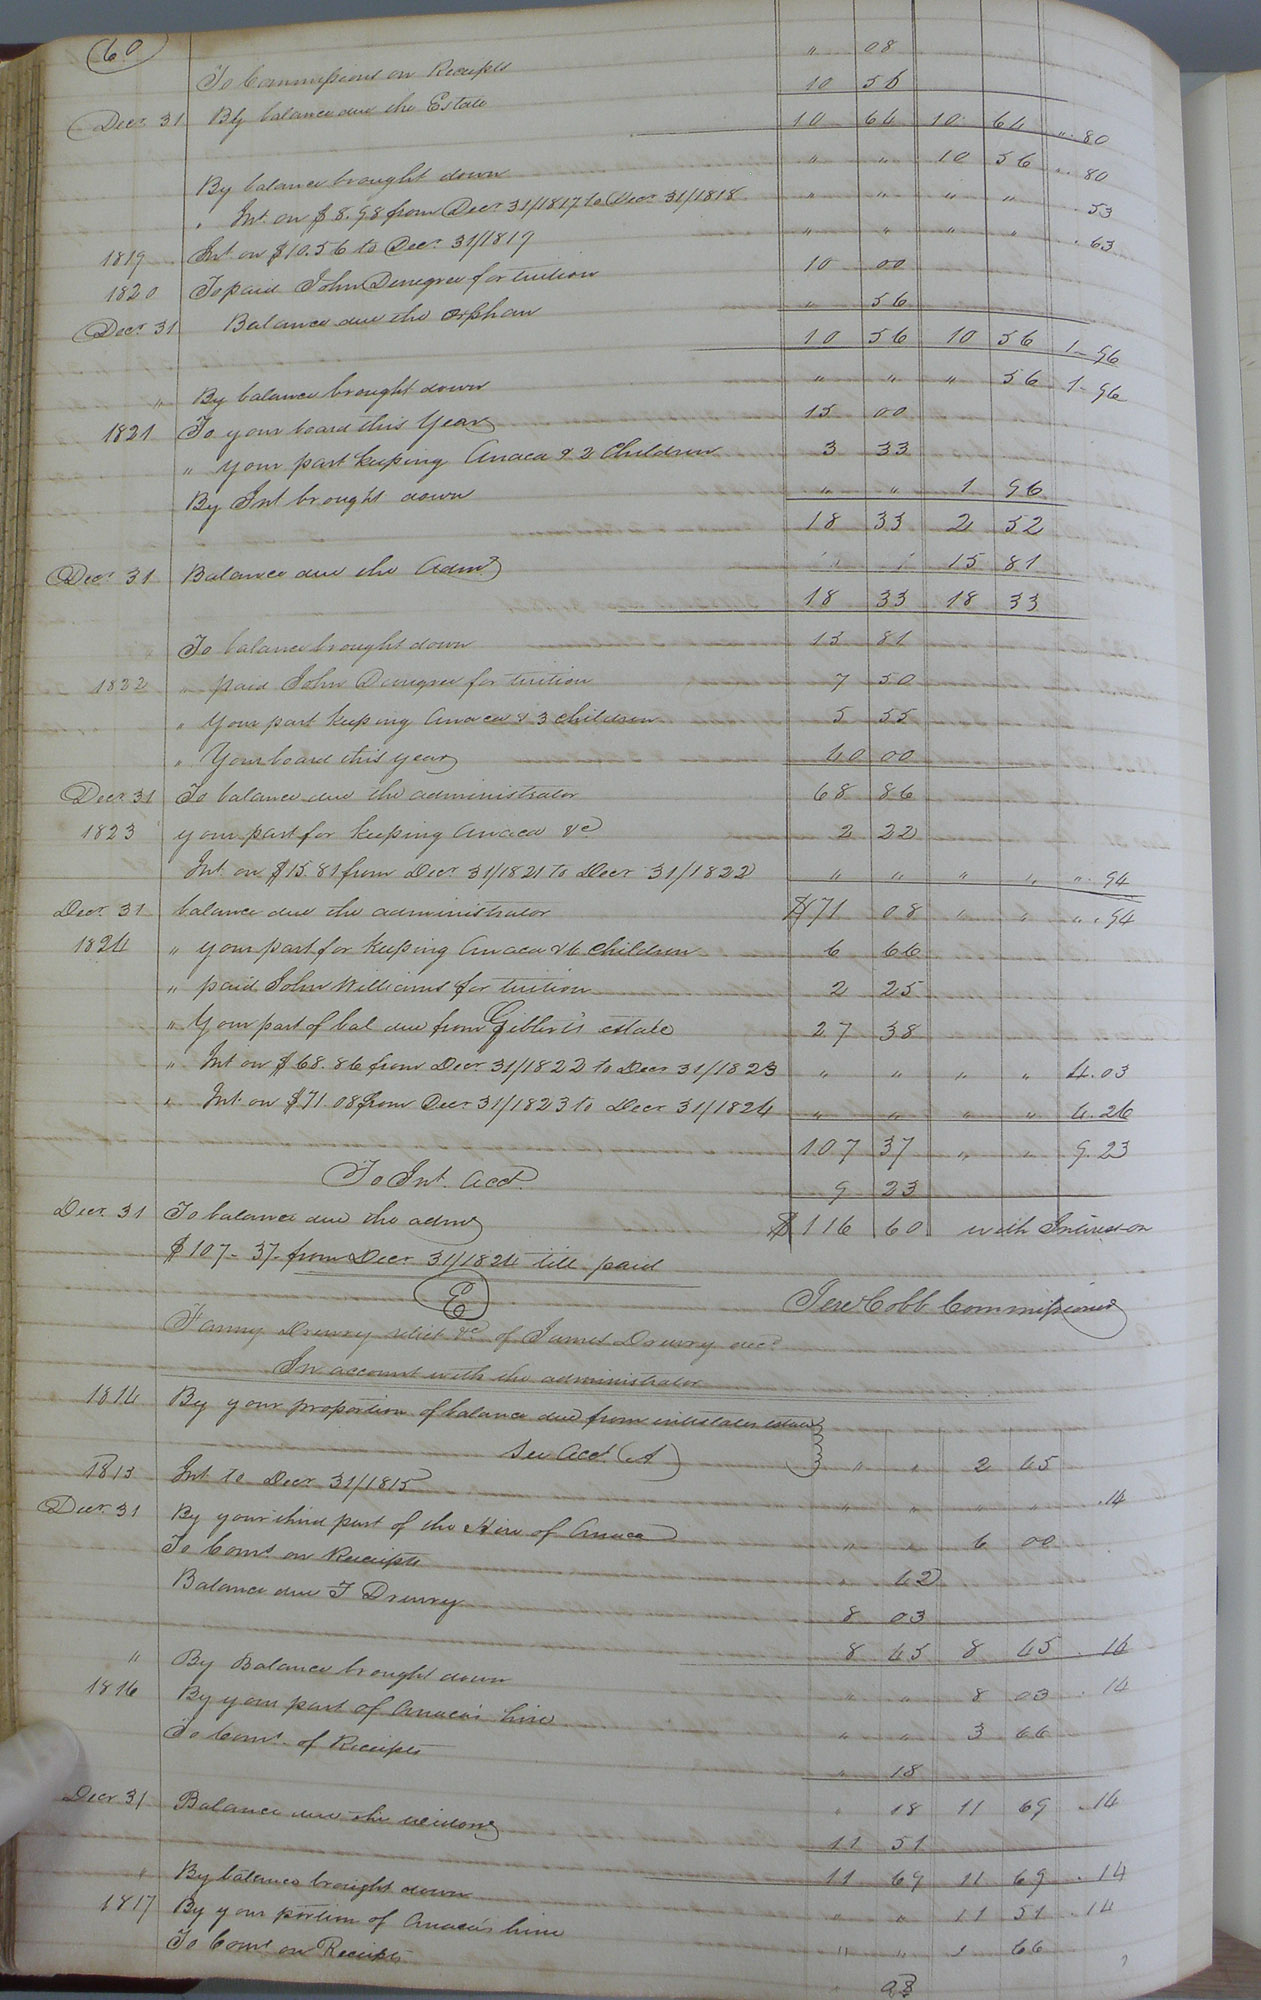 60
To Commissions on Receipts " 08
Decr 31 By balance due the Estate 10 56
10 64 10 64 " . 80
By balance brought down " " 10 56 " . 80
" Int. on $8.98 from Decr 31/1817 to Decr 31/1818 " " " " 53
1819 Int on $10.56 to Decr 31/1819 " " " " . 63
1820 To paid John Denegree for tuition 10 00
Decr 31 Balance due the orphan " 56
10 56 10 56 1 - 96
" By balance brought down " " " 56 1 - 96
1821 To your board this Year 15 00
" your part keeping Anaca & 2 Children 3 33
By Int brought down " " 1 96
18 33 2 52
Decr 31 Balance due the Admr " " 15 81
18 33 18 33
To balance brought down 15 81
1822 " paid John Denegree for tuition 7 50
" Your part keeping Anaca & 3 children 5 55
" Your board this year 40 00
Decr 31 To balance due the administrator 68 86
1823 your part for keeping Anaca &c 2 22
Int. on $15.81 from Decr 31/1821 to Decr 31/1822 " " " " " . 94
Decr 31 balance due the administrator $71 08 " " " . 94
1824 " your part for keeping Anaca & 6 children 6 66
" paid John Williams for tuition 2 25
" Your part of bal due from Gilbert's estate 27 38
" Int on $68.86 from Decr 31/1822 to Decr 31/1823 " " " " 4.03
" Int. on $71.08 from Decr 31/1823 to Decr 31/1824 " " " " 4.26
107 37 " " 9.23
To Int. acct. 9 23
Decr 31 To balance due the admr $116 60 with Interest on
$107-37 from Decr 31/1824 till paid
E Jere Cobb Commissioner
Fanny Drewry relict &c of James Drewry decd
In account with the administrator
1814 By your proportion of balance due from intestates estate
See Acct. (A) " " 2 45
1815 Int to Decr 31/1815 " " " " .14
Decr 31 By your third part of the Hire of Anaca " " 6 00
To Coms on Receipts " 42
Balance due F Drewry 8 03
8 45 8 45 . 14
" By Balance brought down " " 8 03 . 14
1816 By your part of Anaca's hire " " 3 66
To Coms. of Receipts " 18
" 18 11 69 . 14
Decr 31 Balance due the widow 11 51
11 69 11 69 . 14
" By balance brought down " " 11 51 . 14
1817 By your portion of Anaca's hire " " 1 66
To Coms on Receipts " 08